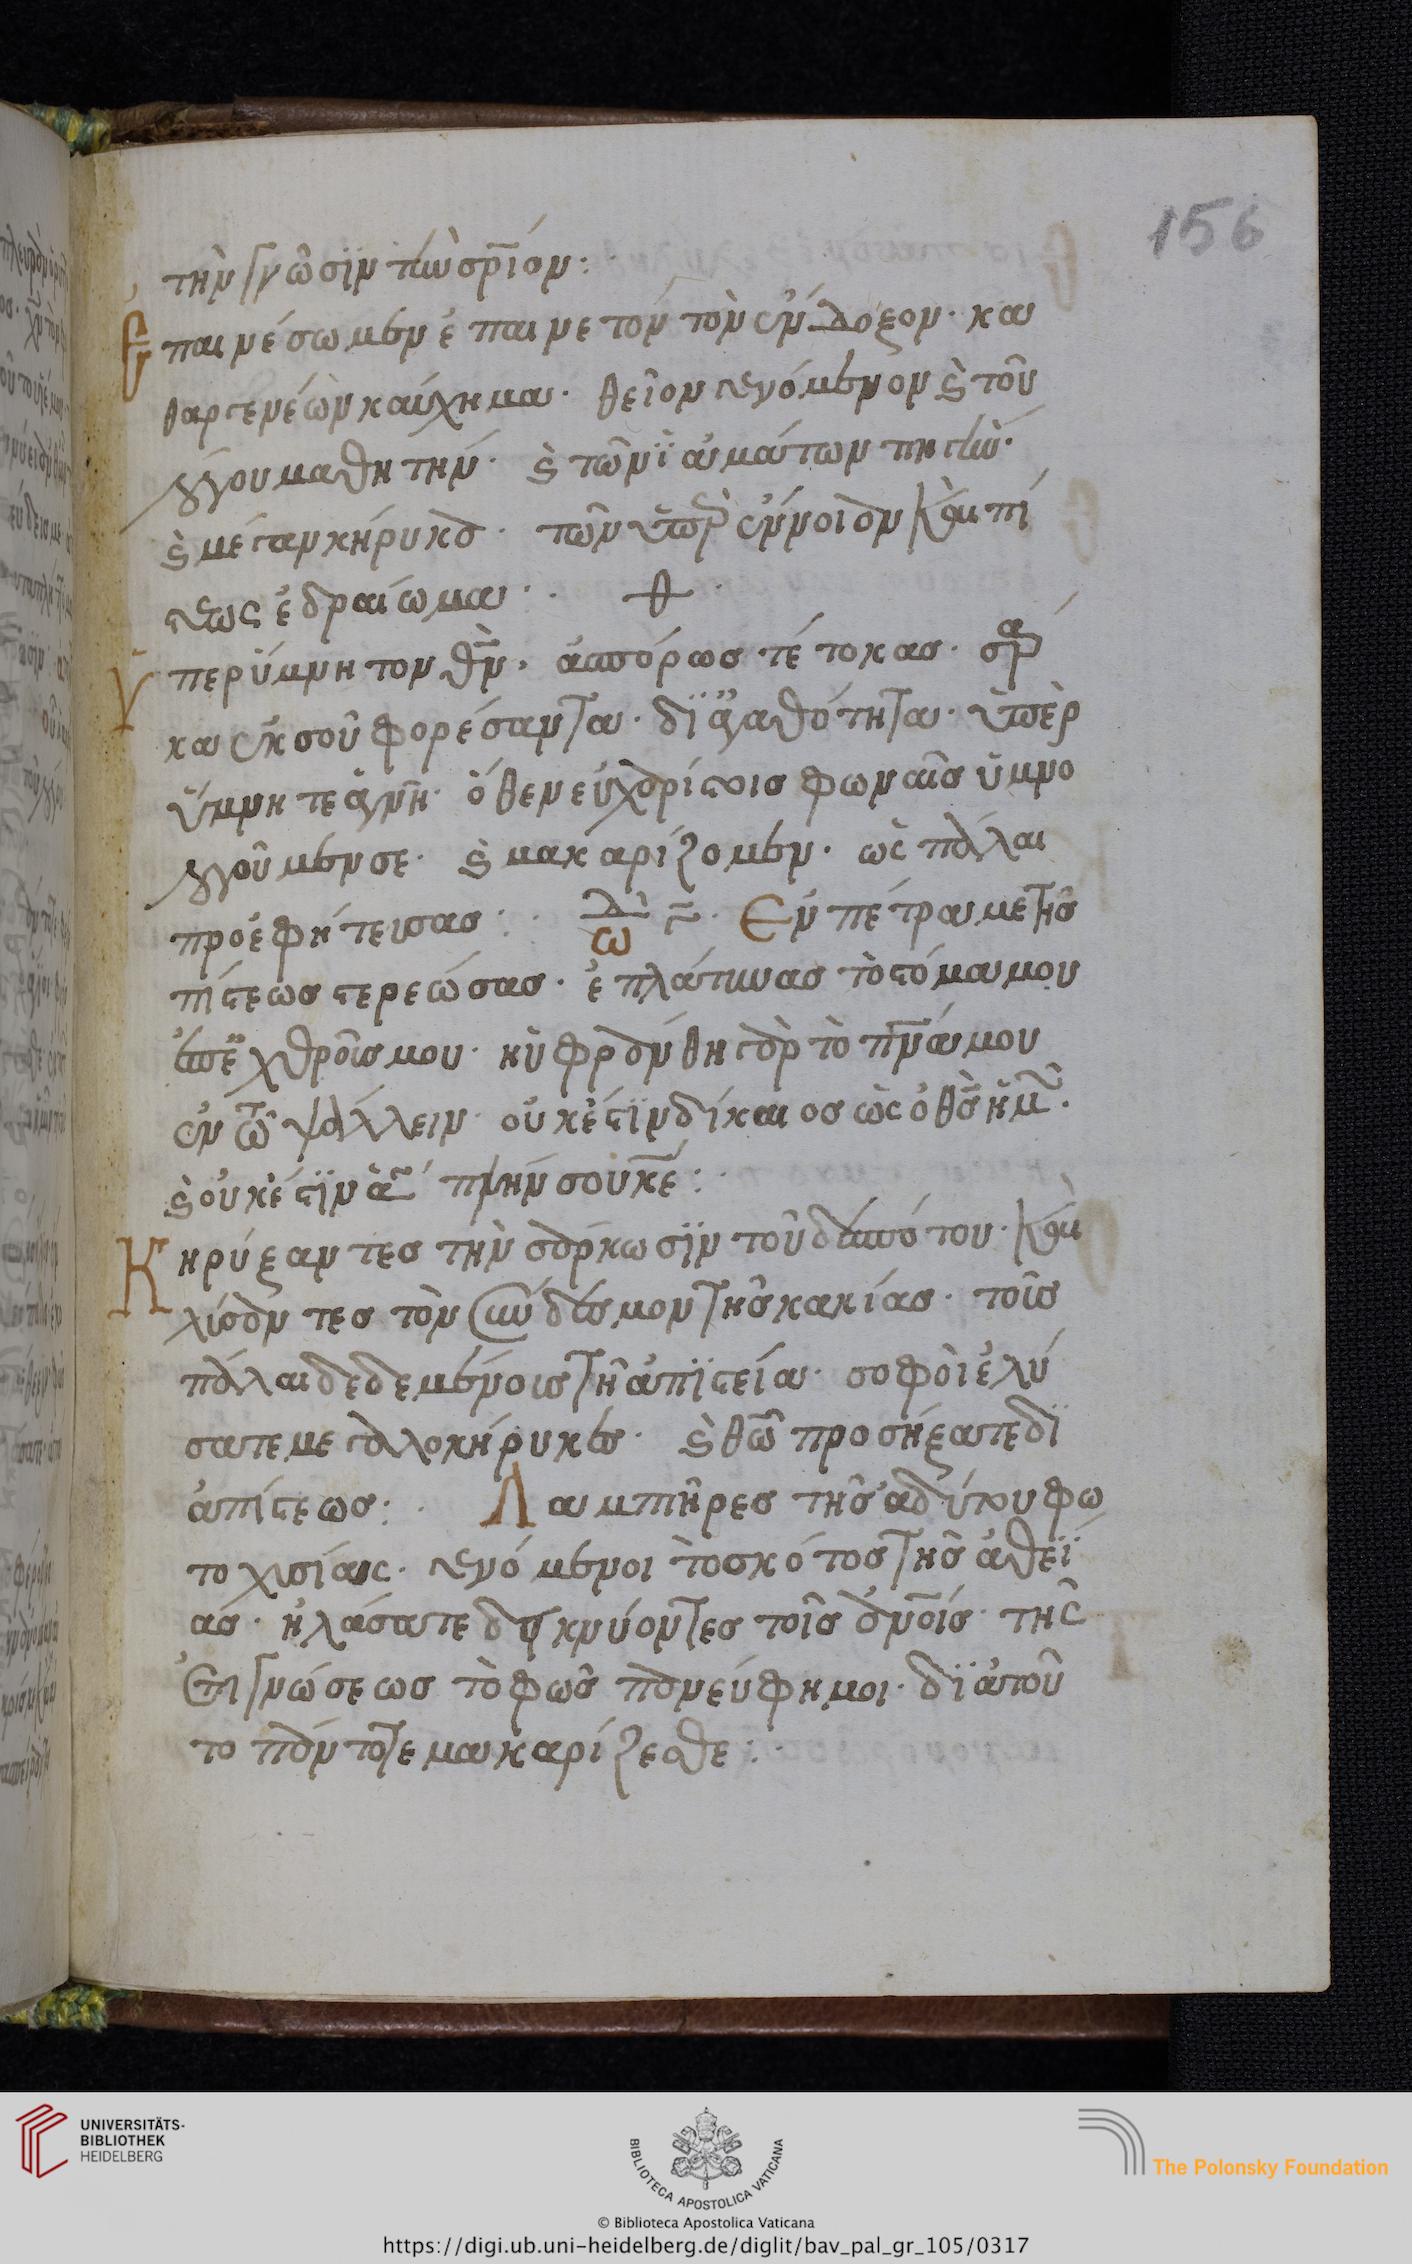 156
τὴν γνῶσϊν τὴν σ̅ρ̅ιον:
Ἐπαινέσωμεν ἐπαινετὸν τὸν ἔνδοξον· κα
θαρτενέων καύχημα· θεῖον γενόμενον καὶ τοῦ
λόγου μαθητήν· καὶ τῶν ϊαμάτων πηγήν·
καὶ μέγαν κήρυκα· τῶν ὑπὲρ ἔννοιαν καὶ πί
στεως ἑδραίωμα· θ·
Ὑπερύμνητον θ̅ν̅· ἀσπόρως τέτοκας· σάρ
κα ἐκ σοῦ φορέσαντα· δϊ ἀγαθότητα· ὑπὲρ
ὕμνητε ἁγνή· ὅθεν εὐχαρίστοις φωναῖς ὑμνο
λογοῦμεν σε· καὶ μακαρίζομεν· ὡς πάλαι
προεφήτευσας: ᾠδὴ γ̅· Ἐν πέτρα με τῆς
πίστεως στερεώσας· ἐπλάτυνας τὸ στόμα μου
ἐπ' ἐχθροῖς μου· ηὐφράνθη γὰρ τὸ π̅ν̅ά μου
ἐν τῶ ψάλλειν· οὐκ ἔστϊν δίκαιος ὡς ὁ θ̅ς̅ ἡμῶν·
καὶ οὐκ ἔστϊν ἅγιος πλὴν σοῦ κ̅ε̅:
Κηρύξαντες τὴν σάρκωσϊν τοῦ δεσπότου· καὶ
λύσαντες τὸν συνδεσμον τῆς κακίας· τοῖς
πάλαι δεδεμένοις τῆ ἀπϊστεία· σοφοὶ ἐλύ
σατε μεγαλοκήρυκες· καὶ θ̅ῶ προσήξατε δϊ
ἀπίστεως: Λαμπῆρες τῆς ἀδύτου φω
τοχυσίας· γενόμενοι τὸ σκότος τῆς ἀθεϊ
ας· ἠλάσατε δεικνύοντες τοῖς ἀ̅ν̅οις· τῆς
ἐπιγνώσεως τὸ φῶς πανεύφημοι· δϊ ἀτοῦ
το πάντοτε μακαρίζεσθε:
UNIVERSITÄTS-
BIBLIOTHEK
HEIDELBERG
BIBLIOTECA APOSTOLICA VATICANA
The Polonsky Foundation
© Biblioteca Apostolica Vaticana
https://digi.ub.uni-heidelberg.de/diglit/bav_pal_gr_105/0317